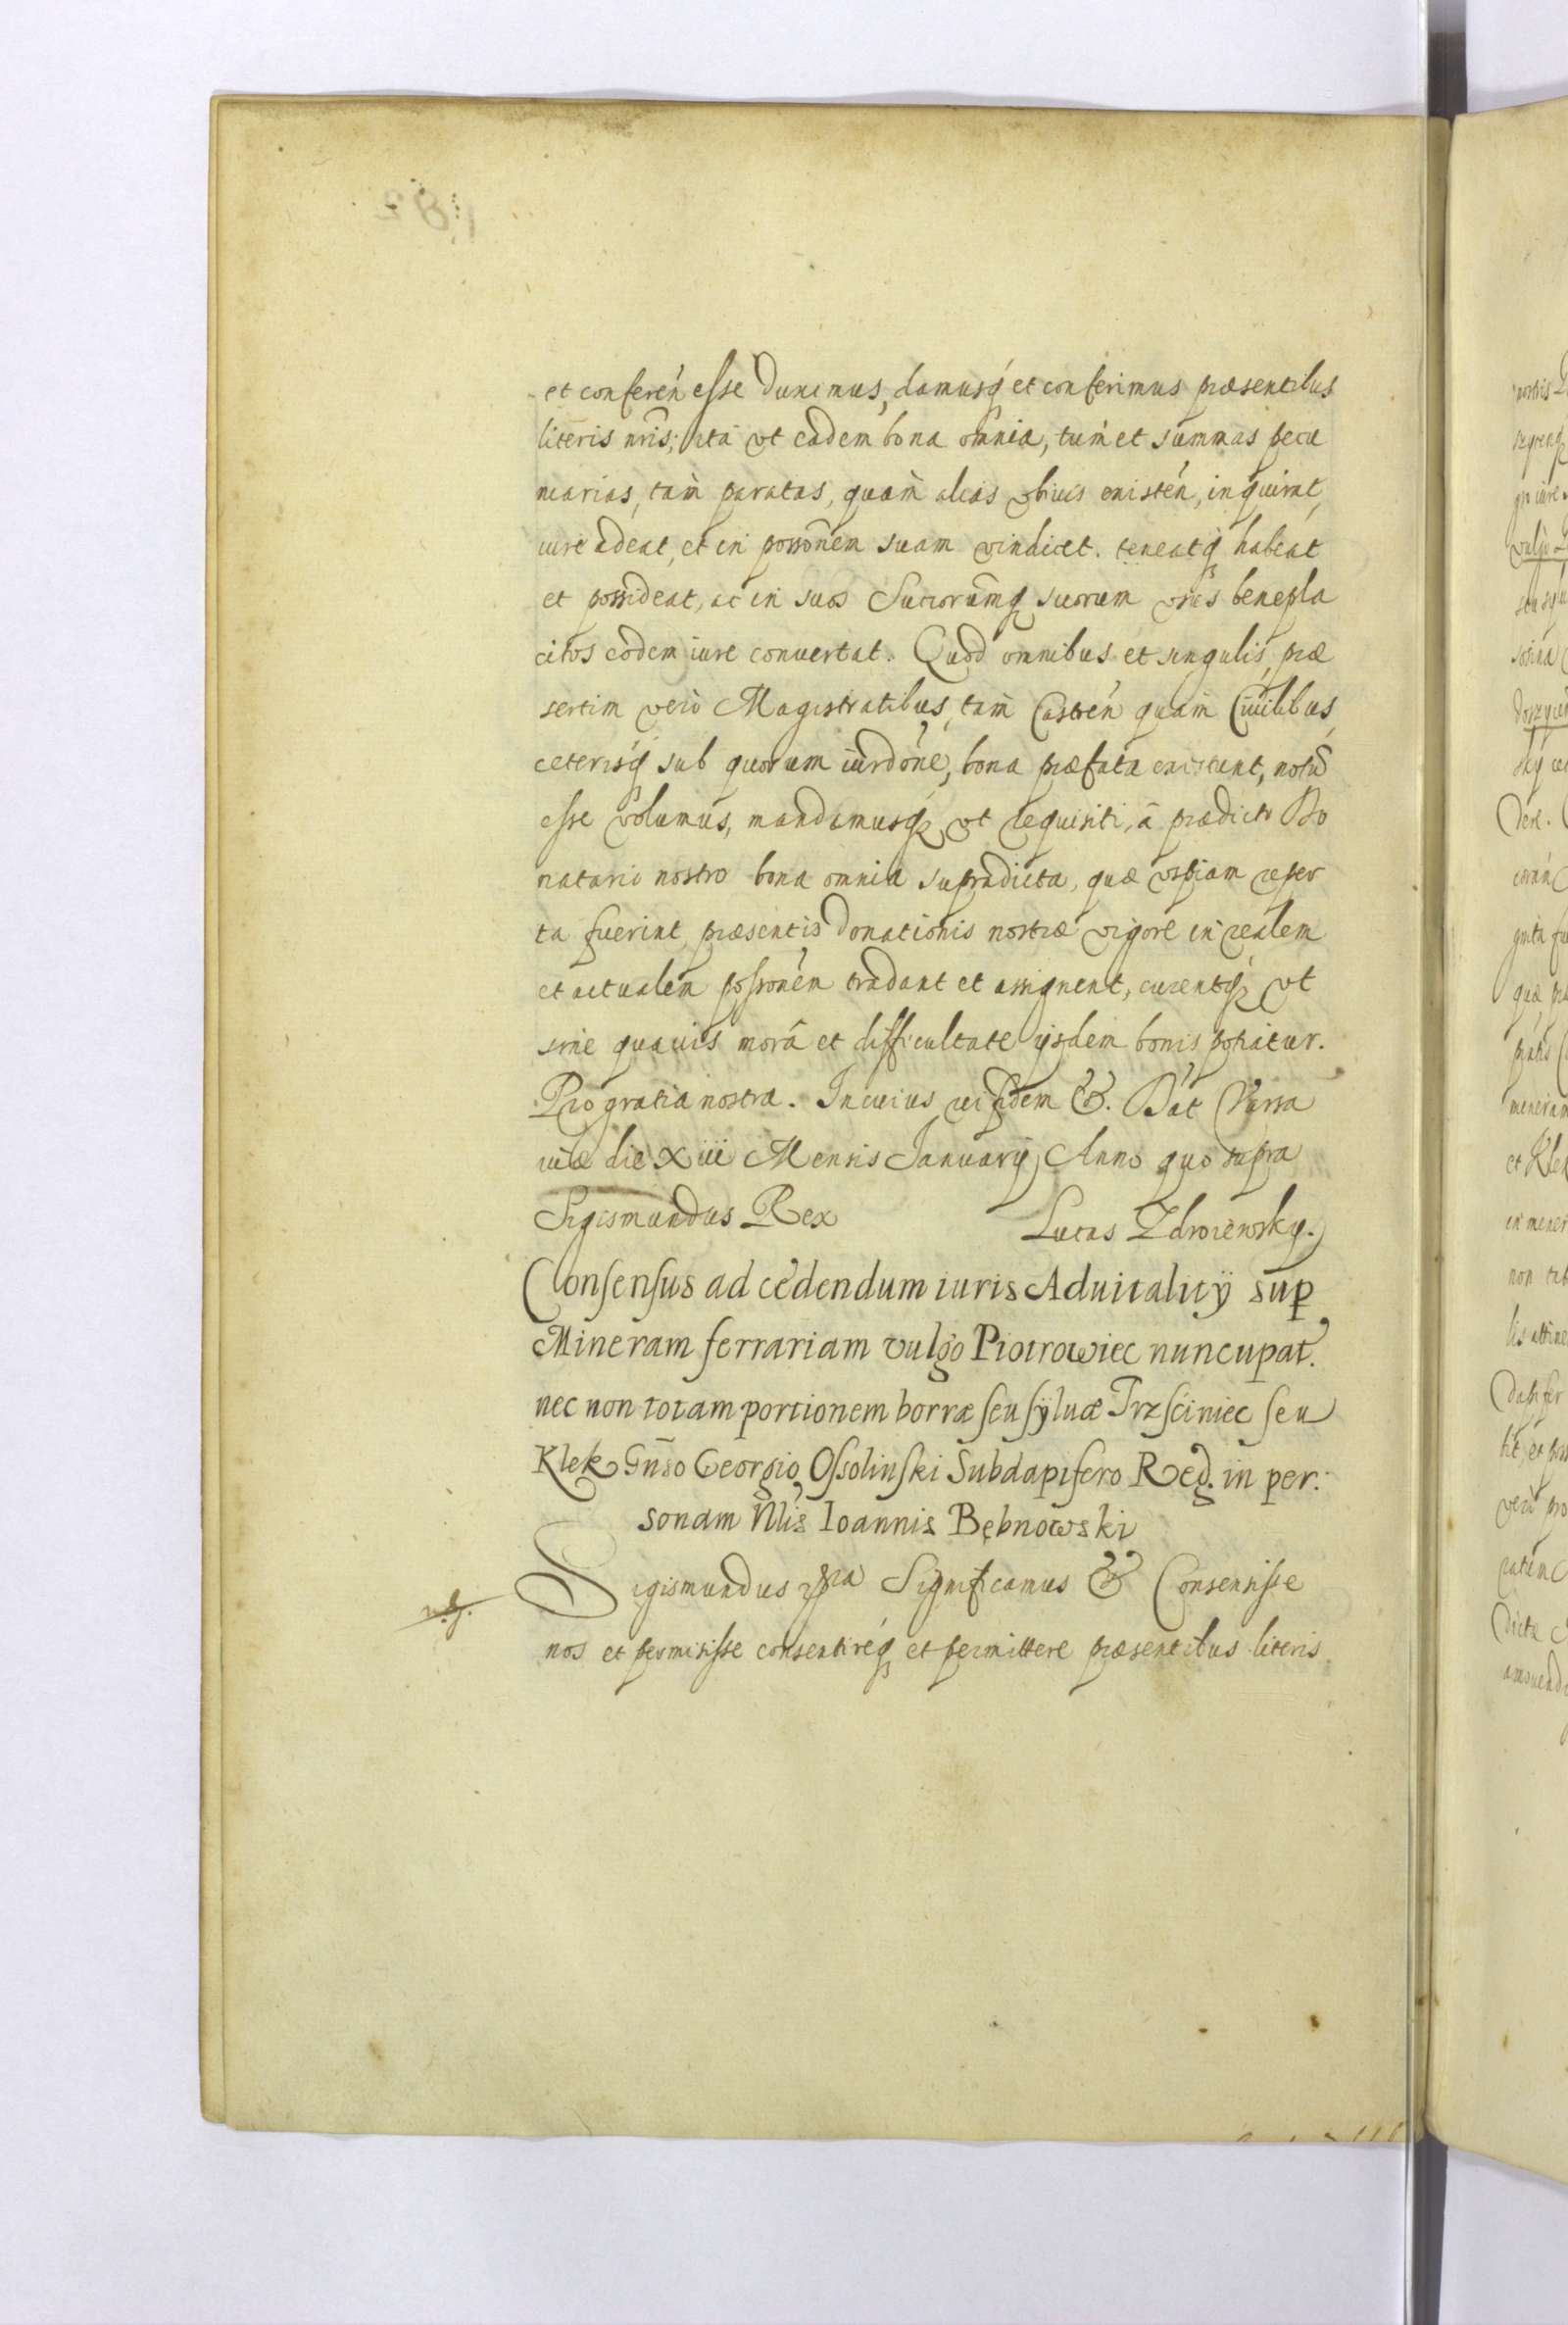 et conferen esse duximus, damusq et conferimus præsentibus
literis nris; ita vt eadem bona omnia, tum et summas pecu
niarias, tam paratas, quam alias vbiuis existen, inquirat,
iure adeat, et in possonem suam vindicet. teneatq habeat
et possideat, ac in suos Succorumq suorum vsus benepla
citos eodem iure conuertat. Quod omnibus et singulis, præ
sertim vero Magistratibus, tam Castren quam Ciuilibus,
ceterisq sub quorum iurdone, bona præfata existunt, notu
esse volumus, mandamusq vt requisiti, a prædicto Do
natario nostro bona omnia supradicta, quæ vspiam reper
ta fuerint præsentis donationis nostræ vigore in realem
et actualem possonem tradant et assignent, curentq vt
sine quauis morâ et difficultate ijsdem bonis potiatur.
Pro gratia nostra. In cuius rei fidem &. Dat Varsa
uiæ die Xiii Mensis Januarij Anno quo supra
Sigismundus Rex Lucas Zdroiewsky.
Consensus ad cedendum iuris Aduitalitÿ sup
Mineram ferrariam vulgo Piotrowiec nuncupat.
nec non totam portionem borræ seu sÿluæ Trzsciniec seu
Klek Gnso Georgio Ossolinski Subdapifero Reg. in per:
sonam Nlis Ioannis Bębnowski
Sigismundus &ra Significamus & Consensisse
nos et permisisse consentireq et permittere præsentibus literis